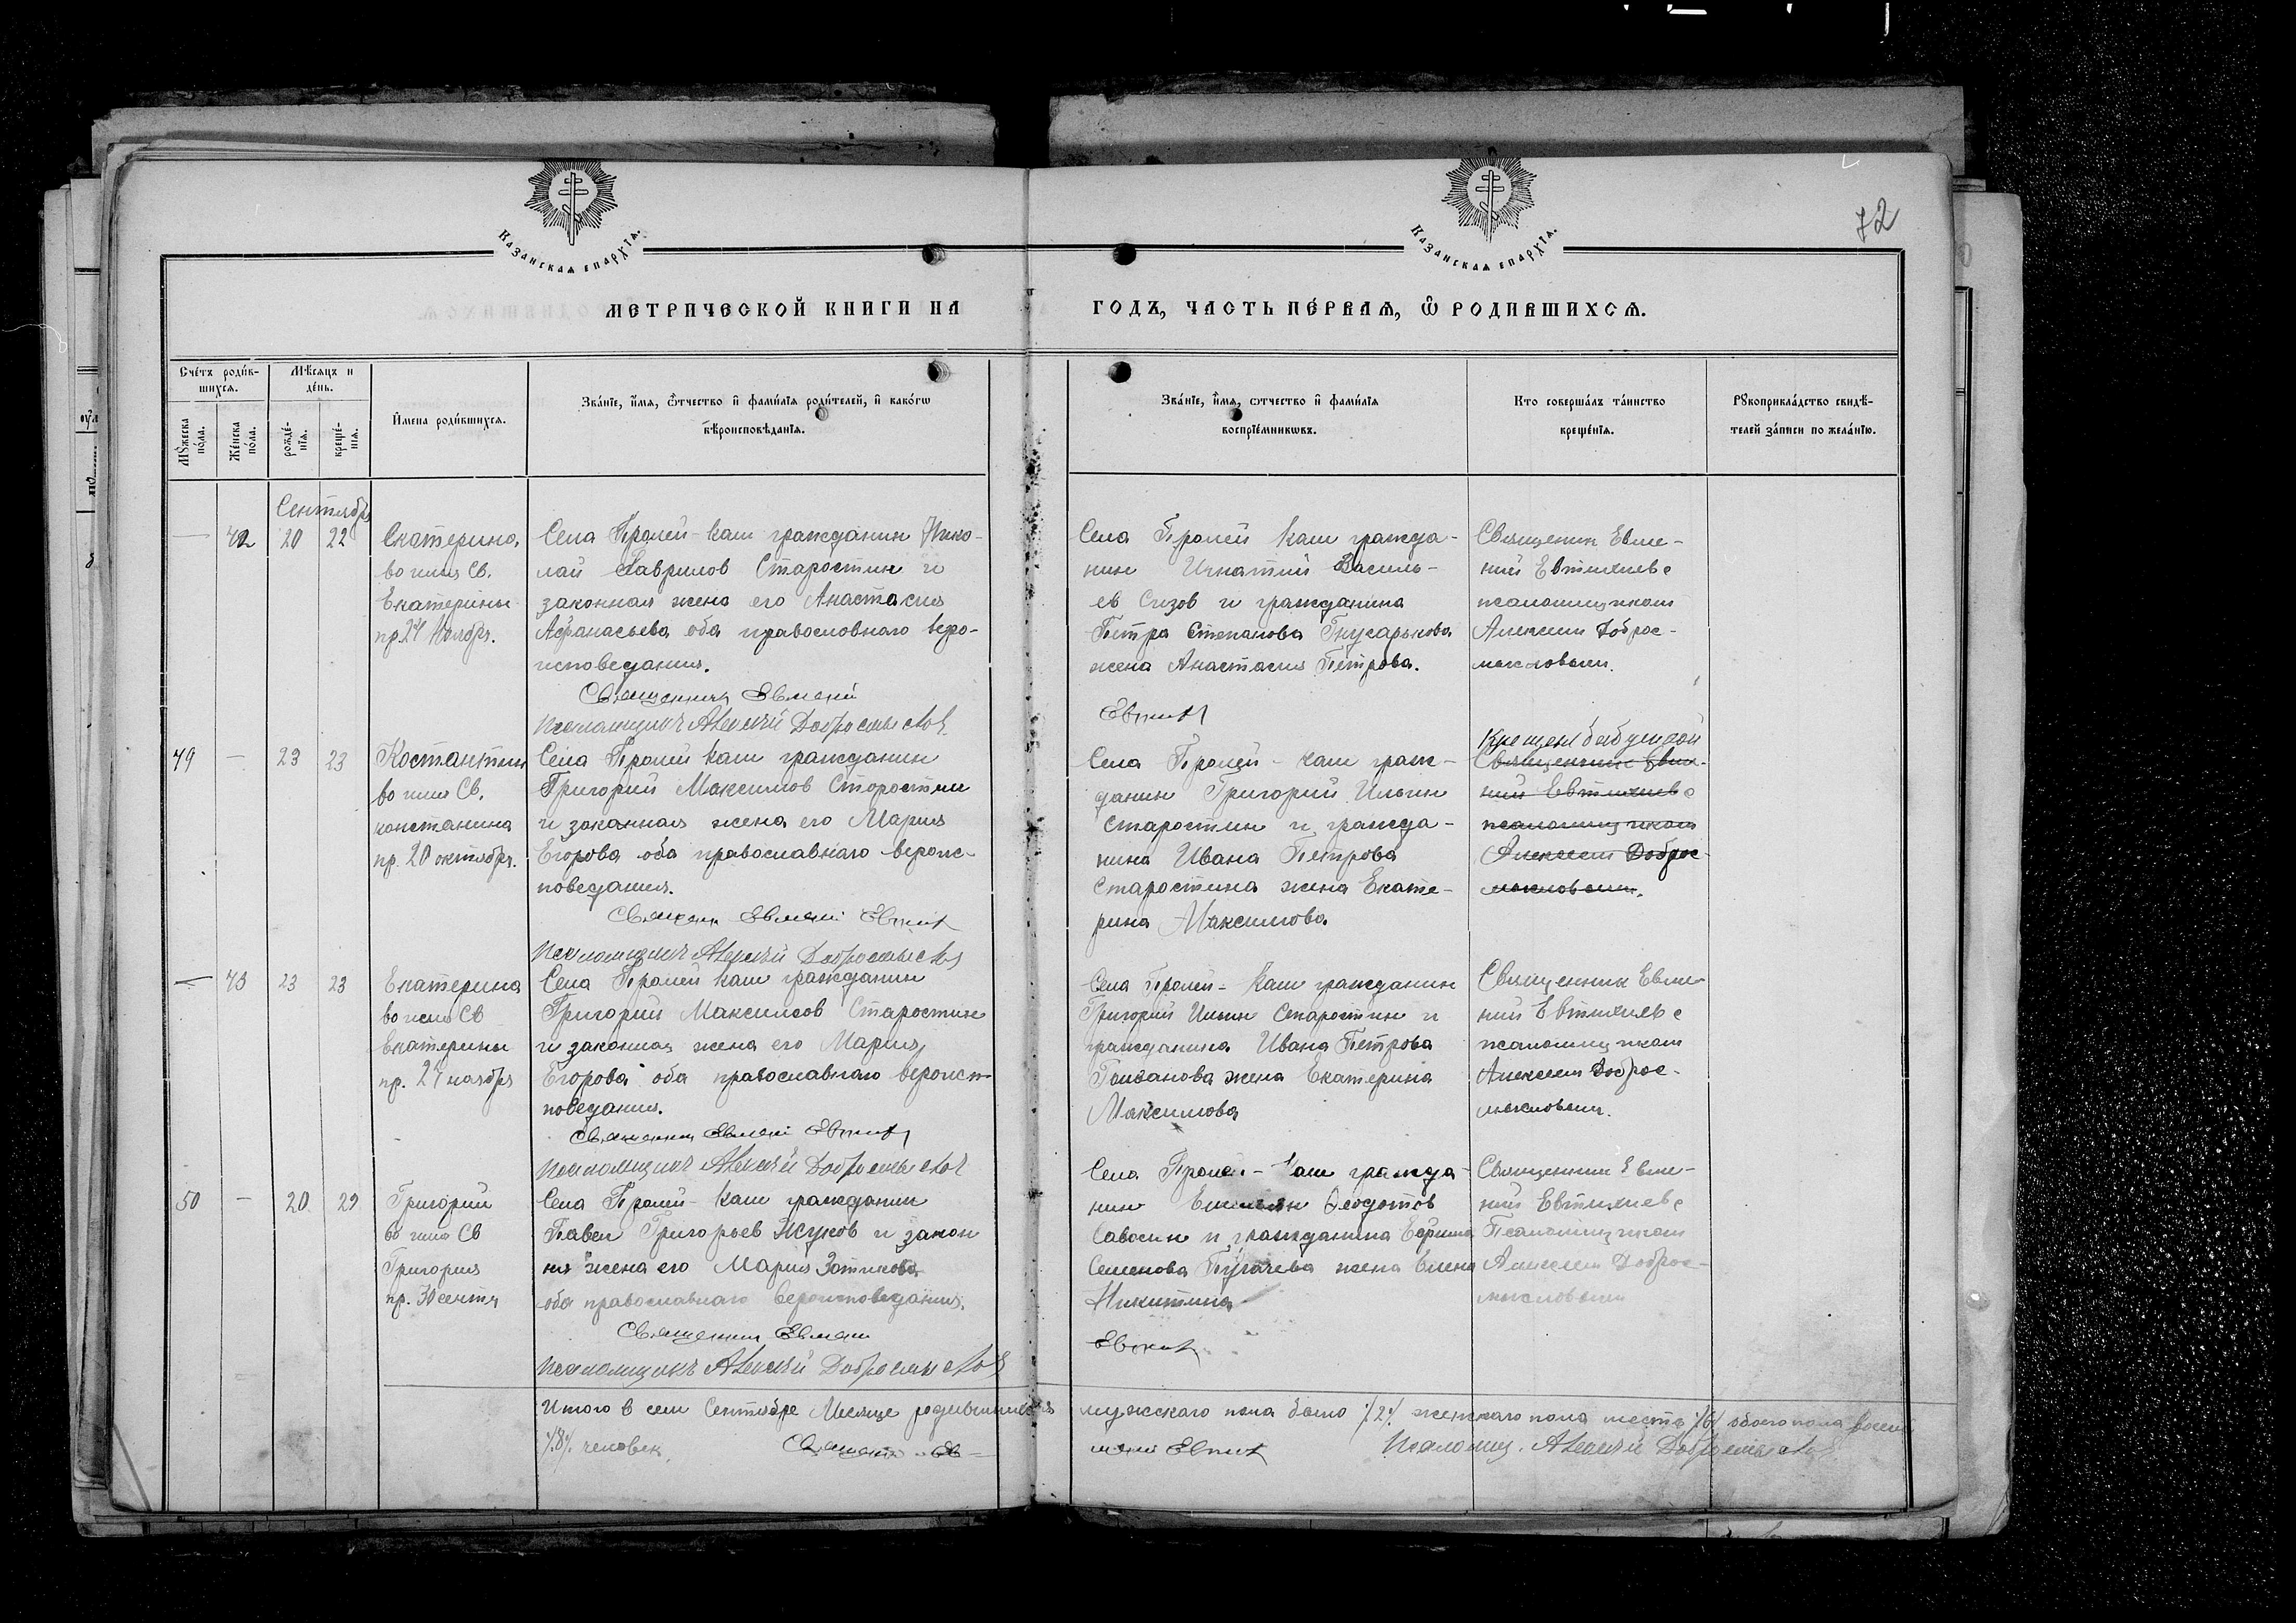 72
КАЗАНСКАѦ ЕПАРХІѦ.
КАЗАНСКАѦ ЕПАРХІѦ.
МЕТРИЧЕСКОЙ КНИГИ НА ГОДЪ, ЧАСТЬ ПЕ́РВАѦ, Ѽ РОДИВШИХСѦ.
Сче́тъ роди́в-
шихсѧ.
Мꙋ́жеска по́ла.
Же́нска по́ла.
Мѣ́сѧцъ и
де́нь.
рожде́-нїѧ.
креще́-нїѧ.
И҆мена роди́вшихсѧ.
Зва́нїе, и҆́мѧ, ѻ҆́тчество и҆ фами́лїѧ роди́телей, и҆ како́гѡ
вѣроисповѣ́данїѧ.
Зва́нїе, и҆́мѧ, ѻтчество и҆ фами́лїѧ
воспрїе́мникѡвъ.
Кто соверша́лъ та́инство
креще́нїѧ.
Рꙋкоприкла́дство свидѣ́-
телей за́писи по жела́нїю.
Сентябрь
— 42 20 22
Екатерина,
во имя Св.
Екатерины
пр. 24 Ноябр.
Села Пролей-Каш гражданин Нико-
лай Гаврилов Старостин и
законная жена его Анастасия
Афанасьева оба православнаго веро-
исповедания.
Священникъ Евмений
Псаломщикъ Алексѣй Добросмыслов.
Села Пролей Каш гражда-
нин Игнатий Василь-
ев Сизов и гражданина
Петра Степанова
жена Анастасия Петрова.
Евтих
Священник Евме-
ний Евтихиев с
псаломщиком
Алексеем Доброс-
мысловым.
49 — 23 23
Костантин
во имя Св.
константина
пр. 20 октябр.
Села Пролей Каш гражданин
Григорий Максимов Старостин
и законная жена его Мария
Егорова оба православнаго вероис-
поведания.
Священ Евмени Евтих
Псаломщикъ Алексѣй Добросмыслов
Села Пролей-Каш граж-
данин Григорий Ильин
Старостин и гражда-
нина Ивана Петрова
Старостина жена Екате-
рина Максимова
Крещен бабушкой
Священник Евме-
ний Евтихиев с
псаломщиком
Алексеем Доброс-
мысловым.
— 43 23 23
Екатерина
во имя Св
Екатерины
пр. 24 ноябрь
Села Пролей Каш гражданин
Григорий Максимов Старостин
и законная жена его Мария
Егорова оба православнаго вероисп-
поведания.
Священник Евмени Евтих
Псаломщикъ Алексѣй Добросмыслов
Села Пролей-Каш гражданин
Григорий Ильин Старостин и
гражданина Ивана Петрова
жена Екатерина
Максимова
Священник Евме-
ний Евтихиев с
псаломщиком
Алексеем Доброс-
мысловым.
50 — 20 29
Григорий
во имя Св
Григория
пр. 30 сентя
Села Пролей-Каш гражданин
Павел Григорьев Жуков и закон
ня жена его Мария Зотикова
оба православнаго вероисповедания.
Священник Евмени
Псаломщикъ Алексѣй Добросмыслов
Села Пролей-Каш гражда-
нин Емельян Феодотов
Савосин и гражданина Ефрима
Семенова Пугачева жена Елена
Никитина
Евтих
Священник Евме-
ний Евтихиев с
Псаломщиком
Алексеем Доброс-
мысловым
Итого в сем Сентябре Месяце родившихся мужскаго пола было /2/ женскаго пола шесть /6/ обоего пола восемь
/8/ человек. Священник Евмени Евтих Псаломщ. Алексѣй Добросмыслов